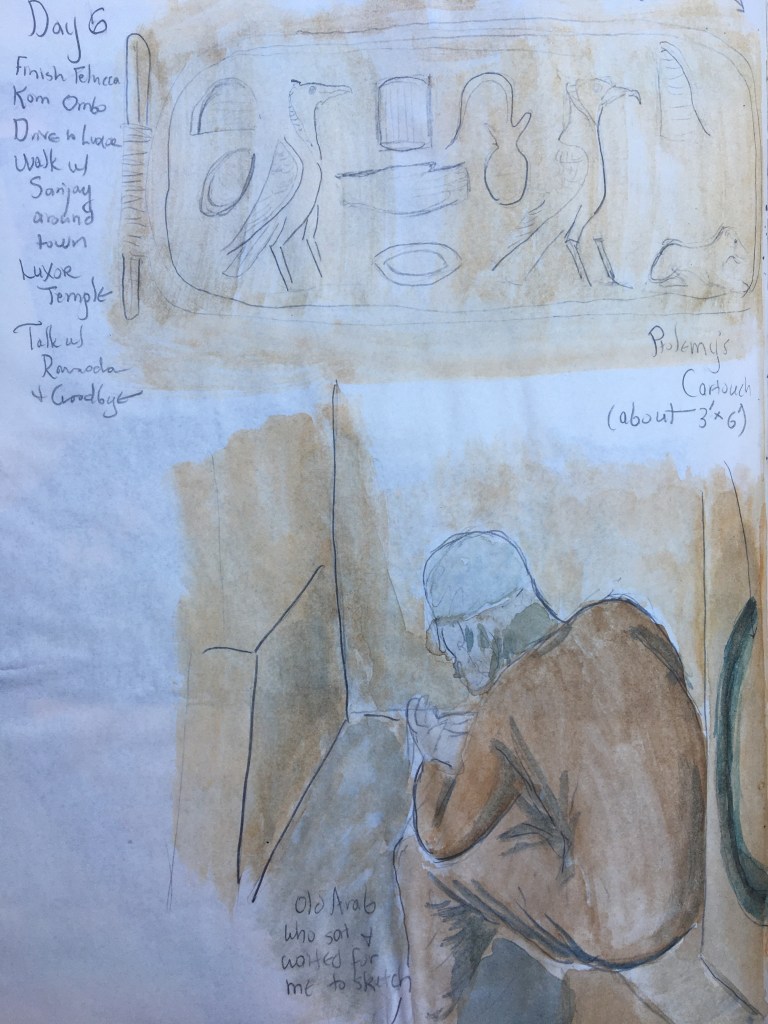 Day 6
Finish Felucca
Kom Ombo
Drive to Luxor
Walk w/
Sanjay
around
town
Luxor
Temple
Talk w/
Ramoda
+ Goodbye
Ptolemy's
Cartouch
(about 3'x6')
Old Arab
who sat +
waited for
me to sketch